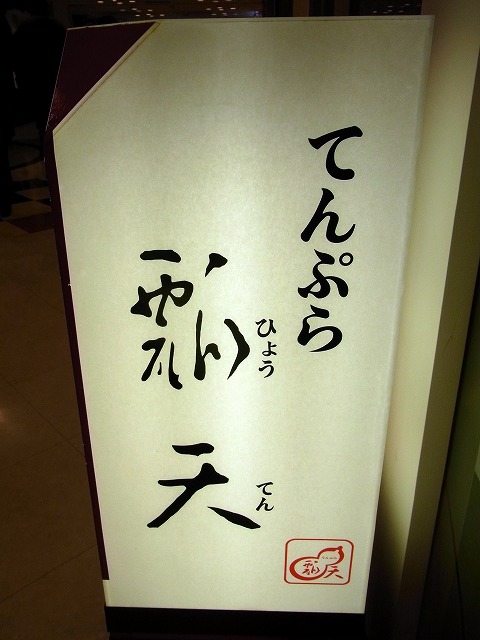 てんぷら
瓢天
ひょう
てん